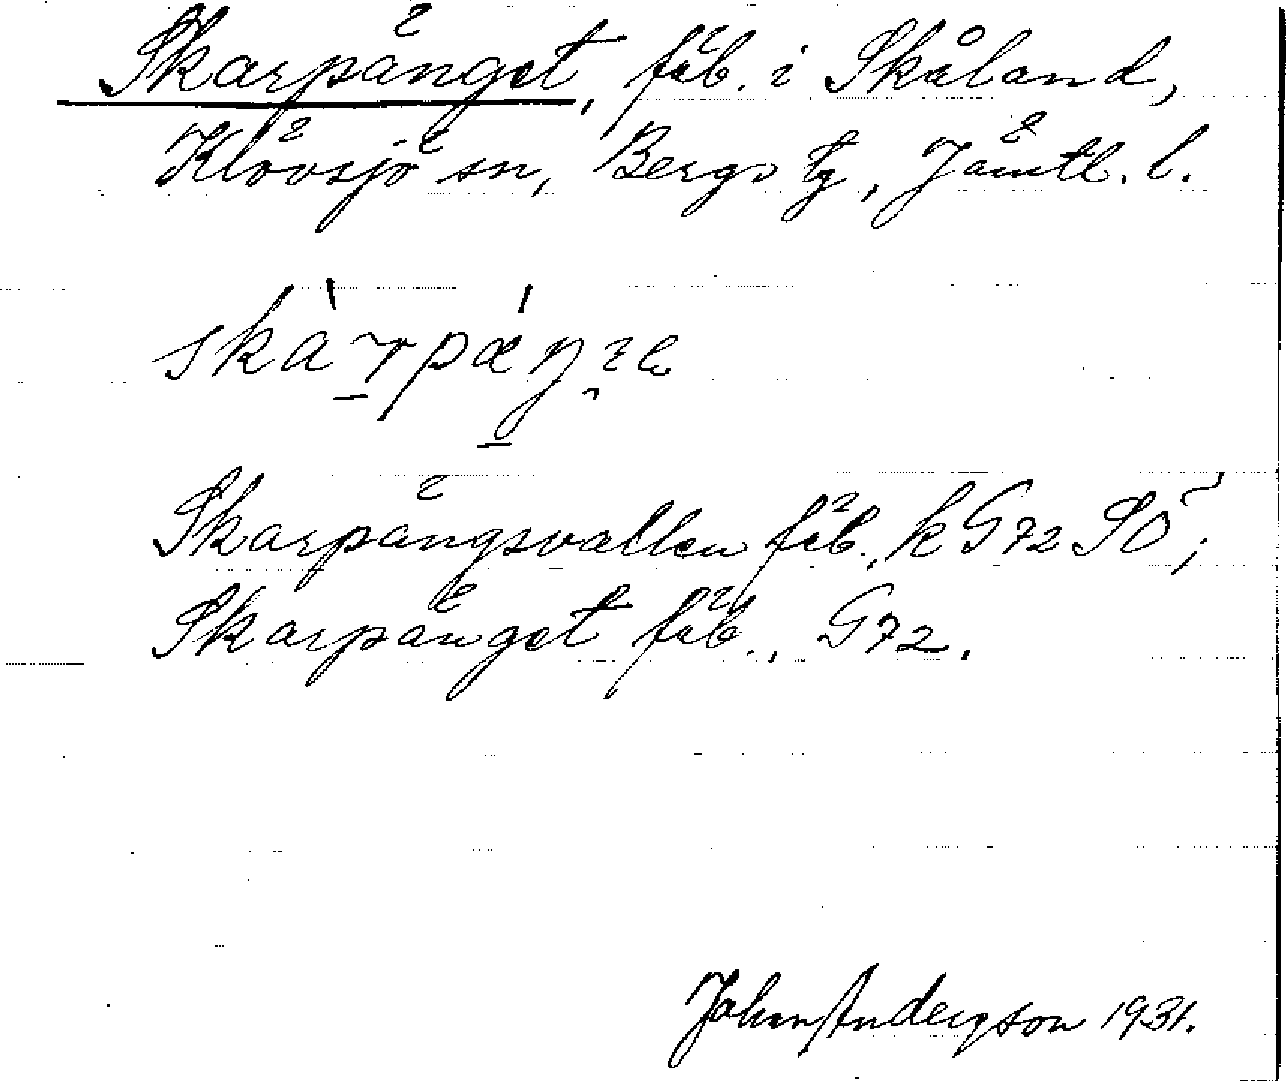 Skarpänget, fäb. i Skåland,
Klövsjö sn, Bergs tg, Jämtl. l.
Skarpängsvallen fäb., k G72 SÖ;
Skarpänget fäb., G72.
Johan Anderson 1931.